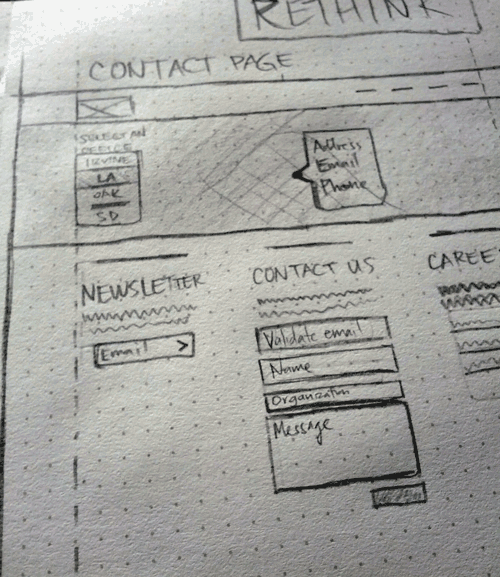 RETHINK
CONTACT PAGE
SELECT AN
OFFICE
IRVINE
LA
OAK
SD
Address
Email
Phone
NEWSLETTER
Email >
CONTACT US
Validate email
Name
Organization
Message
CAREE